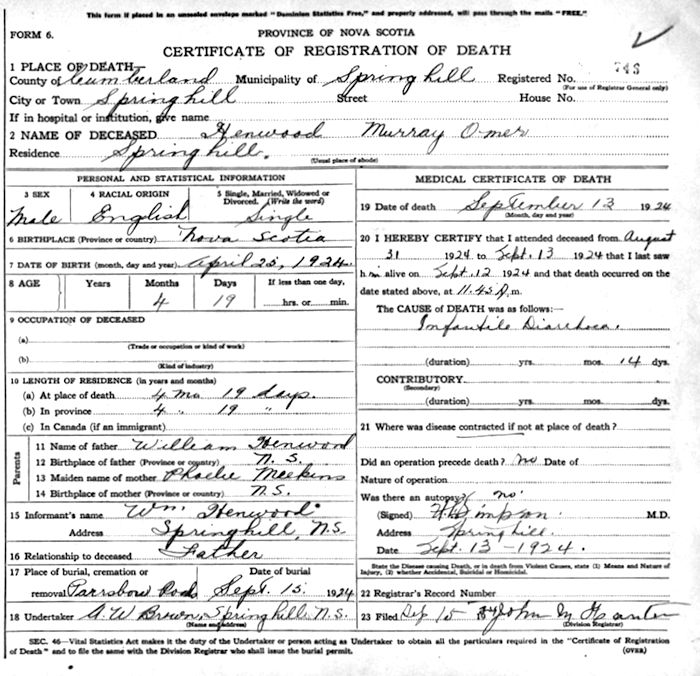 This form if placed in an unsealed envelope marked "Dominion Statistics Free," and properly addressed, will pass through the mails "FREE."
FORM 6.
PROVINCE OF NOVA SCOTIA
CERTIFICATE OF REGISTRATION OF DEATH
1 PLACE OF DEATH
County of Cumberland Municipality of Springhill Registered No. 746
(For use of Registrar General only)
City or Town Springhill Street House No.
If in hospital or institution, give name
2 NAME OF DECEASED Henwood Murray Omer
Residence Springhill.
(Usual place of abode)
PERSONAL AND STATISTICAL INFORMATION
3 SEX 4 RACIAL ORIGIN 5 Single, Married, Widowed or Divorced. (Write the word)
Male English Single
6 BIRTHPLACE (Province or country) Nova Scotia
7 DATE OF BIRTH (month, day and year) April 25, 1924
8 AGE Years Months Days If less than one day,
4 19 hrs. or min.
9 OCCUPATION OF DECEASED
(a)
(Trade or occupation or kind of work)
(b)
(Kind of industry)
10 LENGTH OF RESIDENCE (in years and months)
(a) At place of death 4 mo 19 days.
(b) In province 4 " 19 "
(c) In Canada (if an immigrant)
Parents
11 Name of father William Henwood
12 Birthplace of father (Province or country) N.S.
13 Maiden name of mother Phoebe Meekins
14 Birthplace of mother (Province or country) N.S.
15 Informant's name Wm. Henwood
Address Springhill, N.S.
16 Relationship to deceased Father
17 Place of burial, cremation or removal Date of burial
Parrsboro Road Sept. 15. 1924
18 Undertaker A. W. Brown, Springhill N.S.
(Name and address)
MEDICAL CERTIFICATE OF DEATH
19 Date of death September 13 1924
(Month, day and year)
20 I HEREBY CERTIFY that I attended deceased from August
31 1924 to Sept. 13 1924 that I last saw
him alive on Sept. 12 1924 and that death occurred on the
date stated above, at 11.45 P.m.
The CAUSE of DEATH was as follows:
Infantile Diarrhoea.
(duration) yrs. mos. 14 dys.
CONTRIBUTORY
(Secondary)
(duration) yrs. mos. dys.
21 Where was disease contracted if not at place of death?
Did an operation precede death? no Date of
Nature of operation
Was there an autopsy? no.
(Signed) Simpson. M.D.
Address Springhill.
Date Sept. 13 - 1924.
State the Disease causing Death, or in death from Violent Causes, state (1) Means and Nature of
Injury, (2) whether Accidental, Suicidal or Homicidal.
22 Registrar's Record Number
23 Filed Sep 15 24 John M
(Division Registrar)
SEC. 46—Vital Statistics Act makes it the duty of the Undertaker or person acting as Undertaker to obtain all the particulars required in the "Certificate of Registration
of Death" and to file the same with the Division Registrar who shall issue the burial permit.
(OVER)